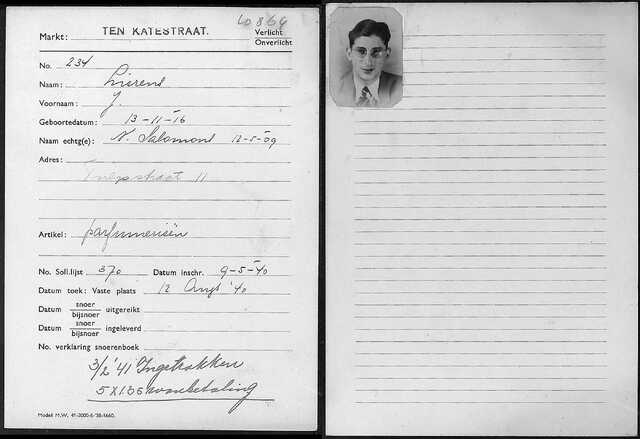 10866
Markt: TEN KATESTRAAT.
Verlicht
Onverlicht
No. 234
Naam: Lierens
Voornaam: J.
Geboortedatum: 13-11-16
Naam echtg(e): N. Salomons 12-5-09
Adres:
11
Artikel: parfumeriën
No. Soll.lijst 370 Datum inschr. 9-5-40
Datum toek: Vaste plaats 12 Aug '40
Datum snoer/bijsnoer uitgereikt
Datum snoer/bijsnoer ingeleverd
No. verklaring snoerenboek
3/2 '41 Ingetrokken
5 X 1.35 wanbetaling
Model M.W. 41-2000-6-'38-4660.